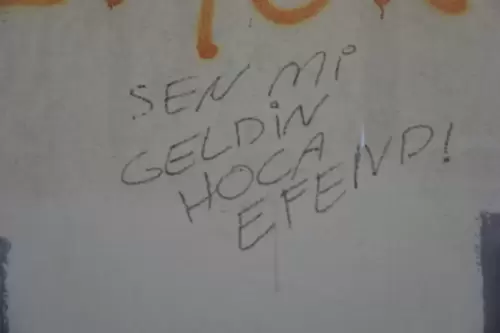 SEN Mi
GELDiN
HOCA
EFEND!